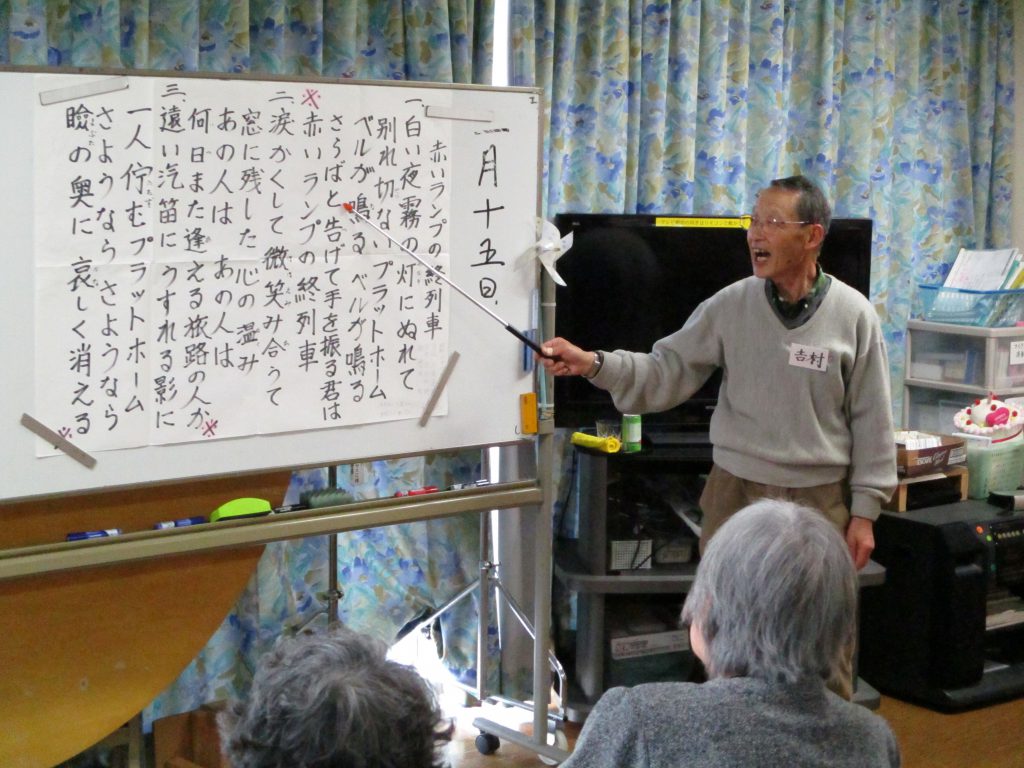 一月十五日
赤いランプの終列車
一、白い夜霧の灯にぬれて
別れ切ないプラットホーム
ベルが鳴る ベルが鳴る
さらばと告げて手を振る君は
※赤いランプの終列車
二、涙かくして微笑み合うて
窓に残した心の温み
あの人は あの人は
何日また逢える旅路の人か※
三、遠い汽笛に うすれる影に
一人佇むプラットホーム
さようなら さようなら
瞼の奥に 哀しく消える※
吉村